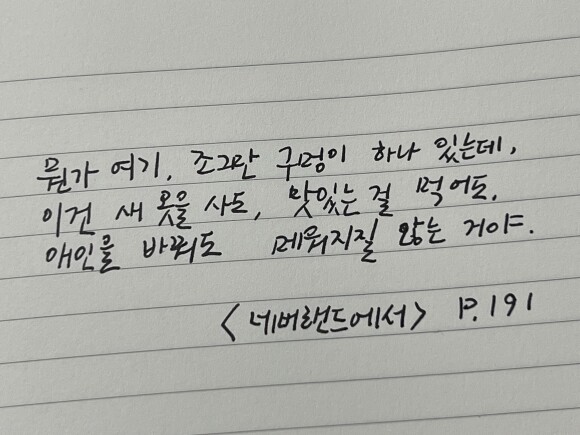 뭔가 여기, 조그만 구멍이 하나 있는데,
이건 새 옷을 사도, 맛있는 걸 먹어도,
애인을 바꿔도 메워지질 않는 거야.
<네버랜드에서> P. 191